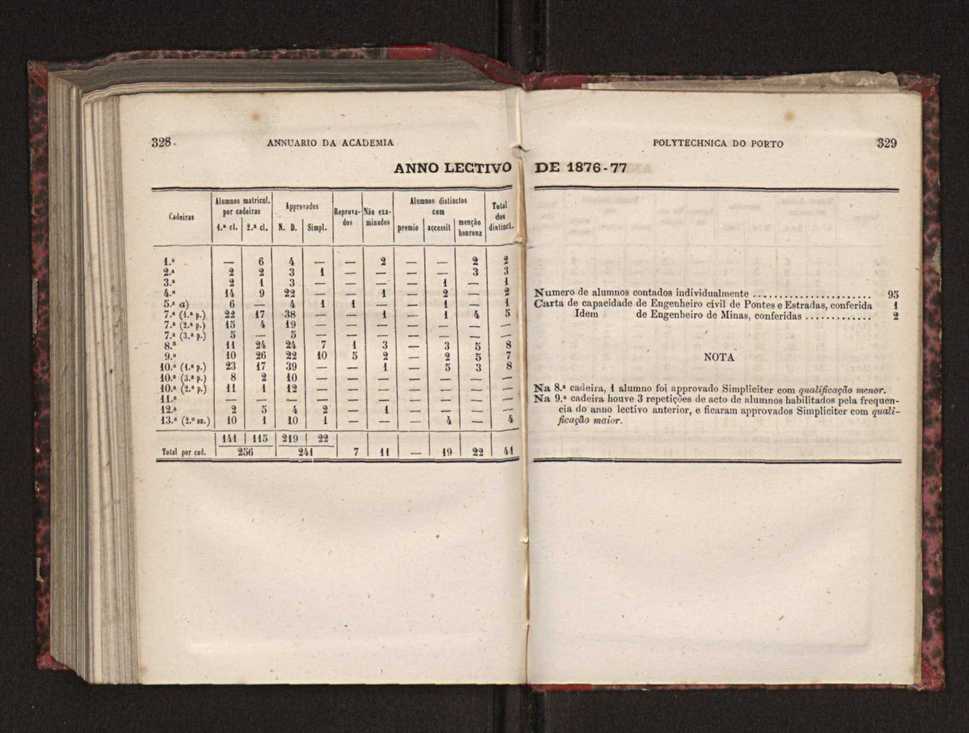 328
ANNUARIO DA ACADEMIA
ANNO LECTIVO
Cadeiras | Alumnos matricul. por cadeiras | Approvados | Reprova-dos | Não exa-minados | Alumnos distinctos com | Total dos distinct.
1.ª cl. | 2.ª cl. | N. D. | Simpl. | premio | accessit | menção honrosa
1.ª — 6 4 — — 2 — — 2 2
2.ª 2 2 3 1 — — — — 3 3
3.ª 2 1 3 — — — — 1 — 1
4.ª 14 9 22 — — 1 — 2 — 2
5.ª a) 6 — 4 1 1 — — 1 — 1
7.ª (1.ª p.) 22 17 38 — — 1 — 1 4 5
7.ª (2.ª p.) 15 4 19 — — — — — — —
7.ª (3.ª p.) 5 — 5 — — — — — — —
8.ª 11 24 24 7 1 3 — 3 5 8
9.ª 10 26 22 10 5 2 — 2 5 7
10.ª (1.ª p.) 23 17 39 — — 1 — 5 3 8
10.ª (3.ª p.) 8 2 10 — — — — — — —
10.ª (2.ª p.) 11 1 12 — — — — — — —
11.ª — — — — — — — — — —
12.ª 2 5 4 2 — 1 — — — —
13.ª (2.º an.) 10 1 10 1 — — — 4 — 4
141 | 115 | 219 | 22
Total por cad. 256 241 7 11 — 19 22 41
POLYTECHNICA DO PORTO
329
DE 1876-77
Numero de alumnos contados individualmente ...................... 95
Carta de capacidade de Engenheiro civil de Pontes e Estradas, conferida 1
Idem de Engenheiro de Minas, conferidas ............. 2
NOTA
Na 8.ª cadeira, 1 alumno foi approvado Simpliciter com qualificação menor.
Na 9.ª cadeira houve 3 repetições de acto de alumnos habilitados pela frequen-
cia do anno lectivo anterior, e ficaram approvados Simpliciter com quali-
ficação maior.